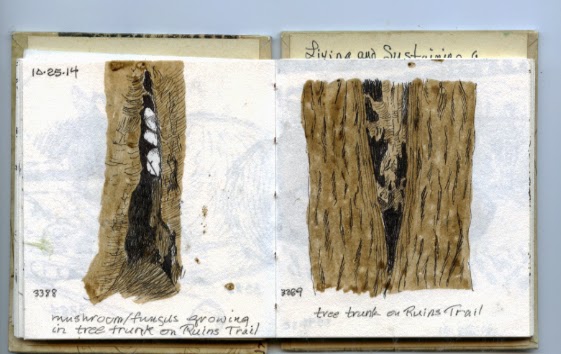 Living and Sustaining a
10.25.14
3388
mushroom/fungus growing
in tree trunk on Ruins Trail
3389
tree trunk on Ruins Trail